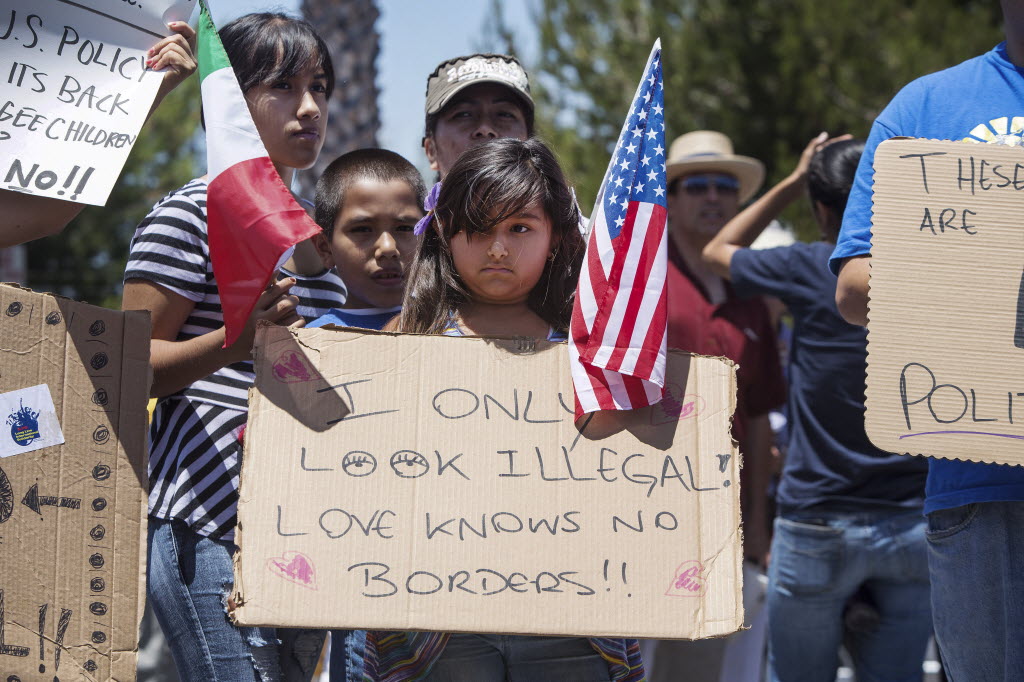 U.S. POLICY
ITS BACK
GEE CHILDREN
?
NO!!
I ONLY
LOOK ILLEGAL!
LOVE KNOWS NO
BORDERS!!
THESE
ARE
POLIT